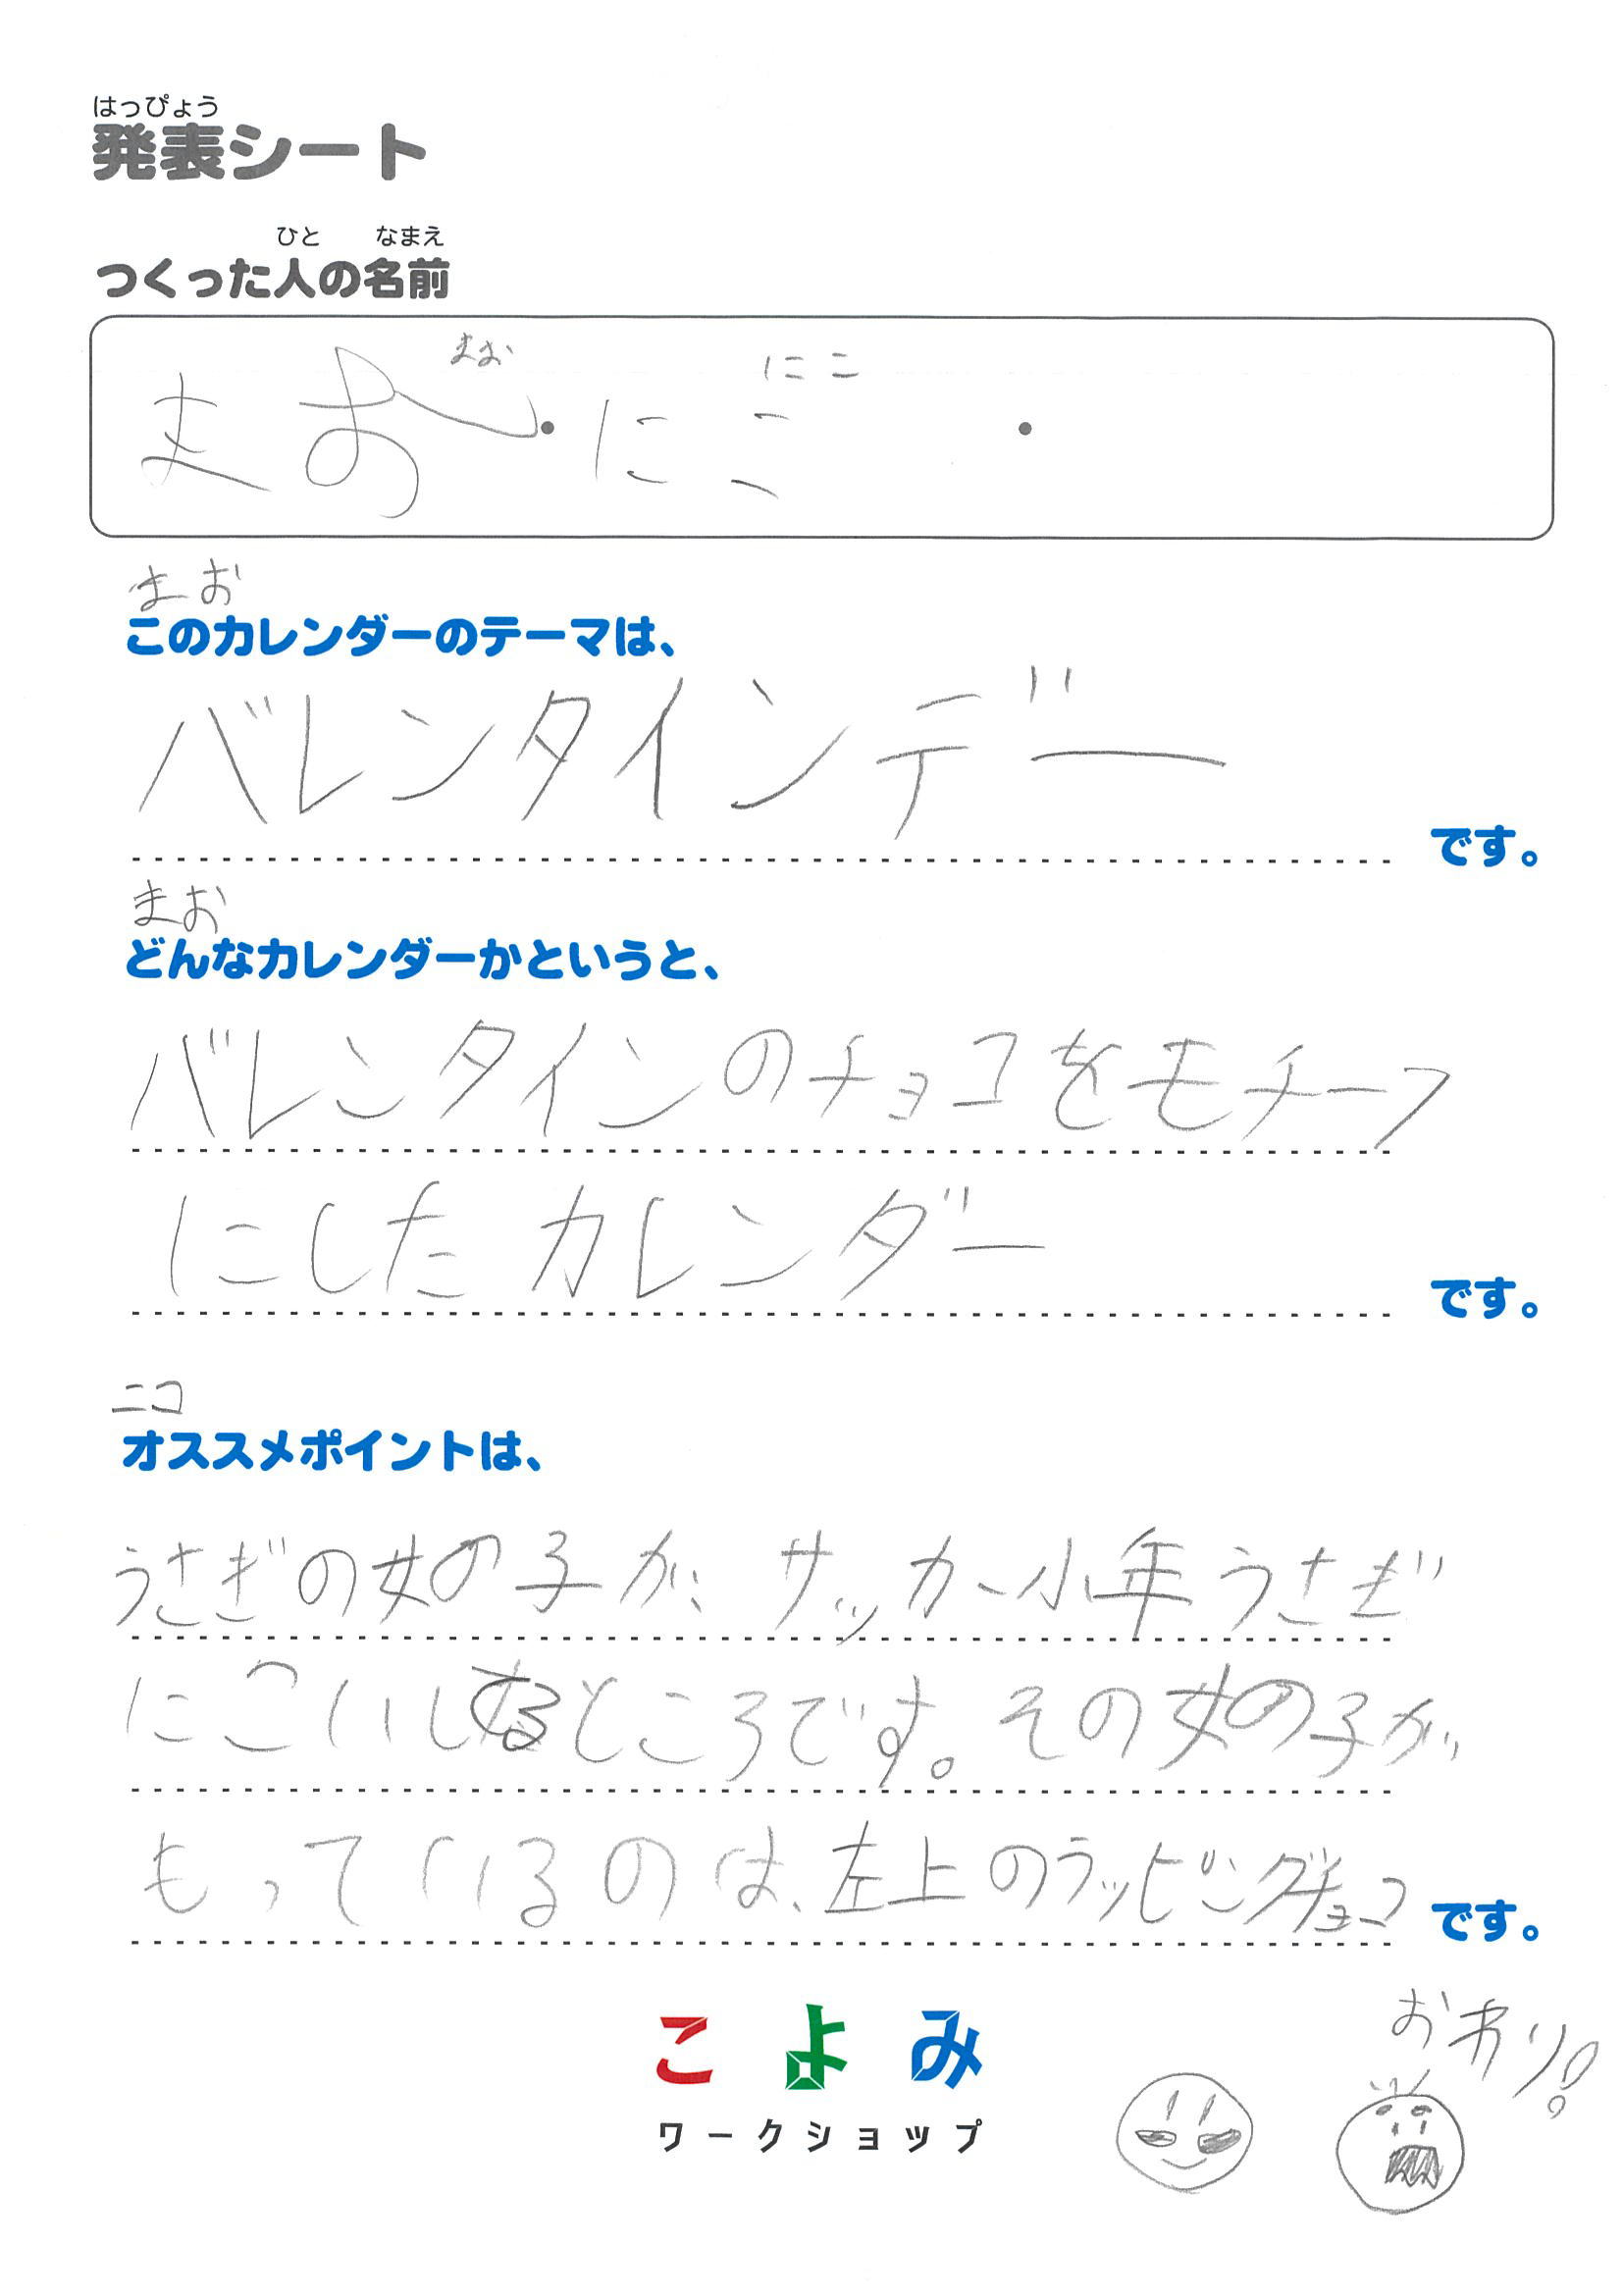 はっぴょう
発表シート
ひと なまえ
つくった人の名前
まお にこ
まお・にこ ・
まお
このカレンダーのテーマは、
バレンタインデー
です。
まお
どんなカレンダーかというと、
バレンタインのチョコをモチーフ
にしたカレンダー
です。
ニコ
オススメポイントは、
うさぎの女の子が、サッカー小年うさぎ
にこいしてるところです。その女の子が
もっているのは、左上のラッピングチョコ
です。
おわり!
こよみ
ワークショップ